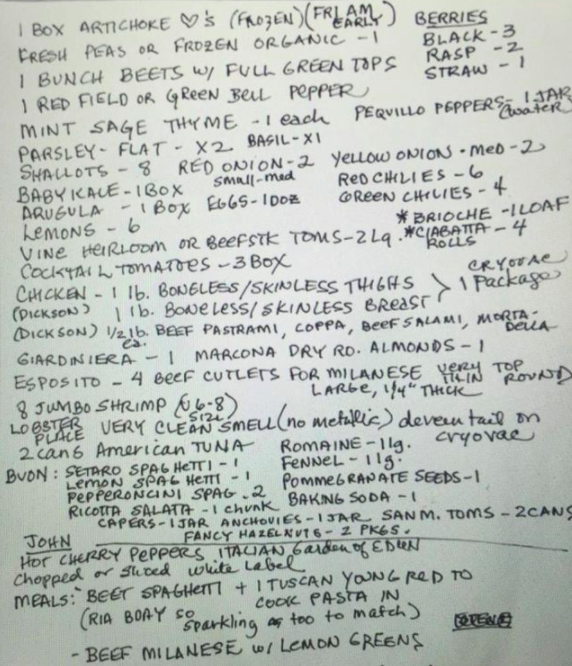 1 BOX ARTICHOKE ♡'s (FROZEN) (FRI AM EARLY)
FRESH PEAS OR FROZEN ORGANIC - 1
1 BUNCH BEETS W/ FULL GREEN TOPS
1 RED FIELD OR GREEN BELL PEPPER
BERRIES
BLACK - 3
RASP - 2
STRAW - 1
MINT SAGE THYME - 1 each PEQUILLO PEPPERS - 1 JAR (water
PARSLEY - FLAT - X2 BASIL - X1
SHALLOTS - 8 RED ONION - 2 YELLOW ONION - MED - 2
small-med
BABY KALE - 1 BOX RED CHILIES - 6
ARUGULA - 1 BOX EGGS - 1 DOZ GREEN CHILIES - 4
LEMONS - 6 *BRIOCHE - 1 LOAF
VINE HEIRLOOM OR BEEFSTK TOMS - 2 Lg. *CIABATTA - 4 ROLLS
COCKTAIL TOMATOES - 3 BOX
CHICKEN - 1 lb. BONELESS/SKINLESS THIGHS
(DICKSON) 1 lb. BONELESS/SKINLESS BREAST } CRYOVAC 1 Package
(DICKSON) 1/2 lb. ea. BEEF PASTRAMI, COPPA, BEEF SALAMI, MORTA-DELLA
GIARDINIERA - 1 MARCONA DRY RO. ALMONDS - 1
ESPOSITO - 4 BEEF CUTLETS FOR MILANESE VERY THIN TOP ROUND
LARGE, 1/4" THICK
8 JUMBO SHRIMP (U 6-8) SIZE
LOBSTER PLACE VERY CLEAN SMELL (no metallic) devein tail on cryovac
2 cans American TUNA ROMAINE - 1 lg.
BUON: SETARO SPAGHETTI - 1 FENNEL - 1 lg.
LEMON SPAGHETTI - 1 POMMEGRANATE SEEDS - 1
PEPPERONCINI SPAG. 2 BAKING SODA - 1
RICOTTA SALATA - 1 chunk
CAPERS - 1 JAR ANCHOVIES - 1 JAR SAN M. TOMS - 2 CANS
FANCY HAZELNUTS - 2 PKGS.
JOHN
HOT CHERRY PEPPERS ITALIAN Garden of EDEN
Chopped or Sliced white Label
MEALS: BEET SPAGHETTI + 1 TUSCAN YOUNG RED TO
COOK PASTA IN
(RIA BDAY so sparkling too to match)
- BEEF MILANESE W/ LEMON GREENS